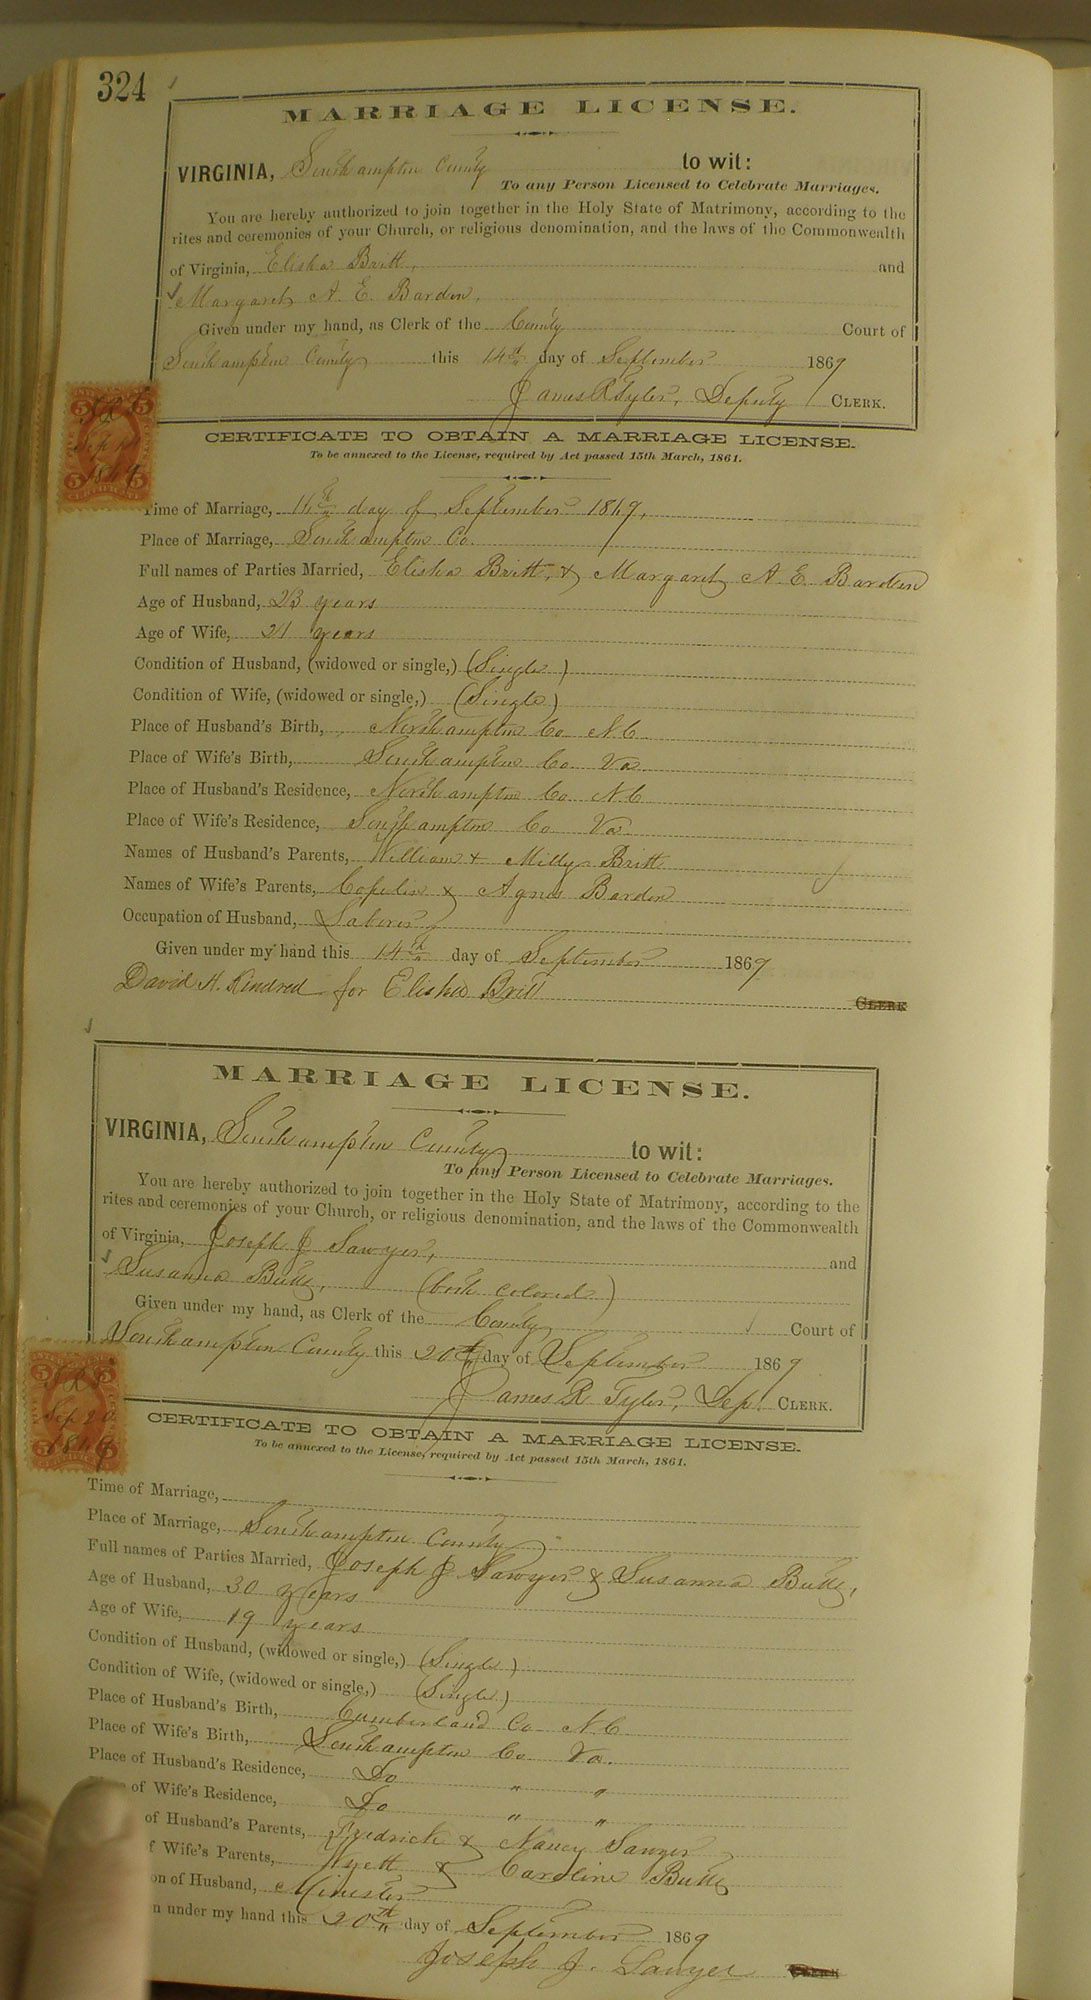 324
MARRIAGE LICENSE.
VIRGINIA, Southampton County to wit:
To any Person Licensed to Celebrate Marriages.
You are hereby authorized to join together in the Holy State of Matrimony, according to the
rites and ceremonies of your Church, or religious denomination, and the laws of the Commonwealth
of Virginia, Elisha Britt, and
Margaret A. E. Barden,
Given under my hand, as Clerk of the County Court of
Southampton County this 14th day of September 1869
James R Tyler, Deputy CLERK.
5 5
Sep 14
1869
5 5
CERTIFICATE
CERTIFICATE TO OBTAIN A MARRIAGE LICENSE.
To be annexed to the License, required by Act passed 15th March, 1861.
Time of Marriage, 14th day of September 1869,
Place of Marriage, Southampton Co
Full names of Parties Married, Elisha Britt, & Margaret A. E. Barden
Age of Husband, 23 years
Age of Wife, 21 years
Condition of Husband, (widowed or single,) (Single)
Condition of Wife, (widowed or single,) (Single)
Place of Husband's Birth, Northampton Co N.C.
Place of Wife's Birth, Southampton Co. Va
Place of Husband's Residence, Northampton Co N.C
Place of Wife's Residence, Southampton Co Va
Names of Husband's Parents, William & Milly Britt
Names of Wife's Parents, & Agnes Barden
Occupation of Husband, Laborer
Given under my hand this 14th day of September 1869
David H. Kindred for Elisha Britt CLERK
MARRIAGE LICENSE.
VIRGINIA, Southampton County to wit:
To any Person Licensed to Celebrate Marriages.
You are hereby authorized to join together in the Holy State of Matrimony, according to the
rites and ceremonies of your Church, or religious denomination, and the laws of the Commonwealth
of Virginia, Joseph J Sawyer, and
Susanna Butts, (both colored)
Given under my hand, as Clerk of the County Court of
Southampton County this 20th day of September 1869
James R Tyler, Dep. CLERK.
Sep 20
1869
CERTIFICATE TO OBTAIN A MARRIAGE LICENSE.
To be annexed to the License, required by Act passed 15th March, 1861.
Time of Marriage,
Place of Marriage, Southampton County
Full names of Parties Married, Joseph J Sawyer & Susanna Butts,
Age of Husband, 30 years
Age of Wife, 19 years
Condition of Husband, (widowed or single,) (Single)
Condition of Wife, (widowed or single,) (Single)
Place of Husband's Birth, Cumberland Co N.C.
Place of Wife's Birth, Southampton Co Va.
Place of Husband's Residence, Do " "
of Wife's Residence, Do " "
of Husband's Parents, Fredrick & Nancy Sawyer
f Wife's Parents, Wyett & Caroline Butts
on of Husband, Minister
n under my hand this 20th day of September 1869
Joseph J. Sawyer CLERK